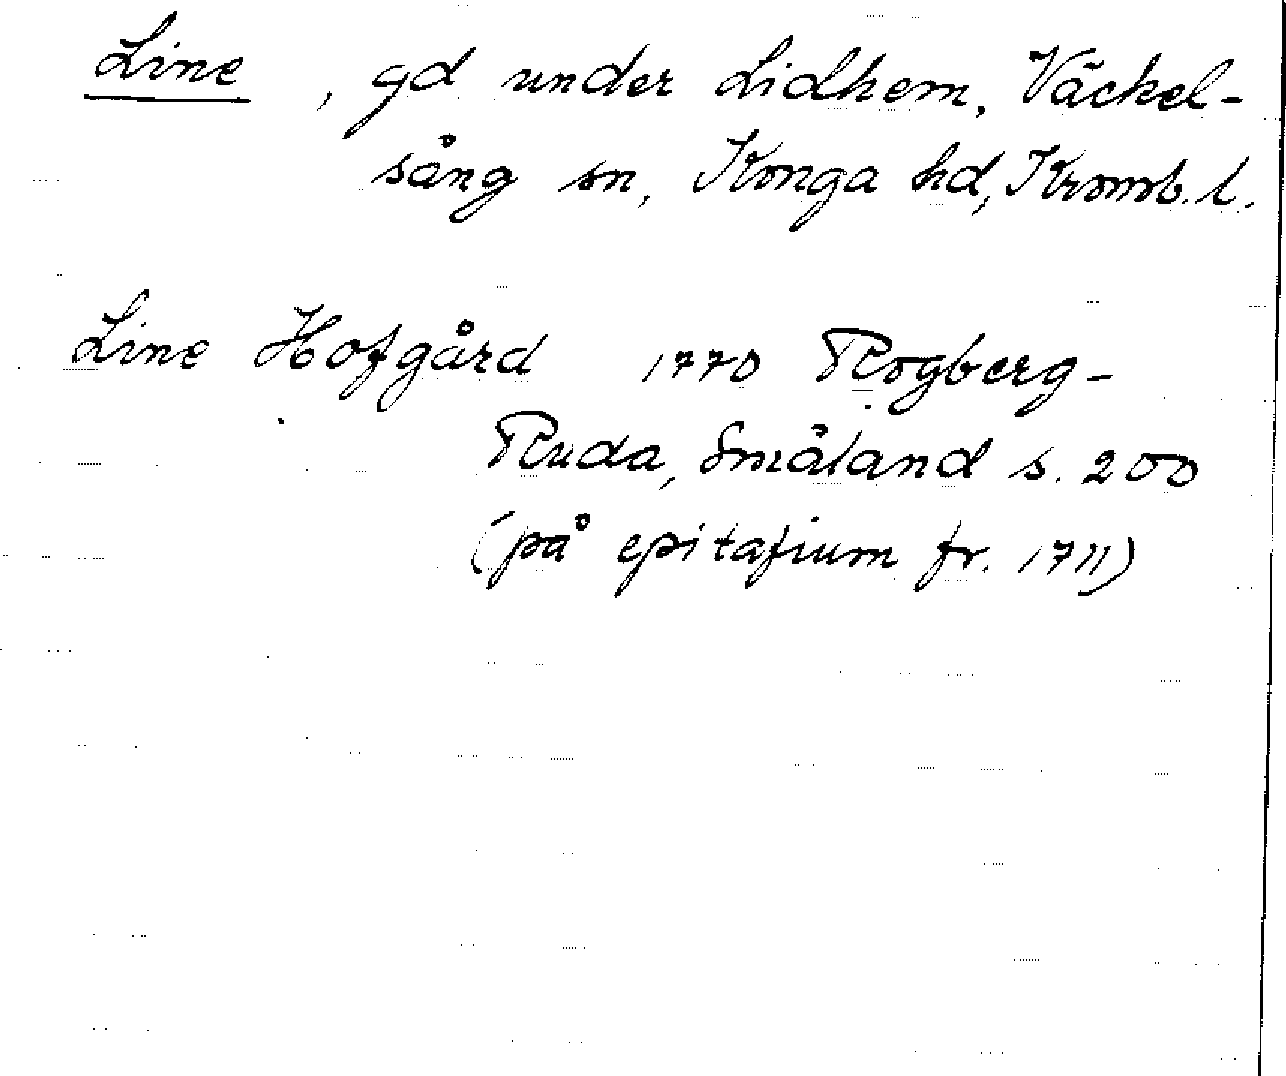 Line, gd under Lidhem, Väckel-
sång sn, Konga hd, Kronob. l.
Line Hofgård 1770 Rogberg-
Ruda, Småland s. 200
(på epitafium fr. 1711)